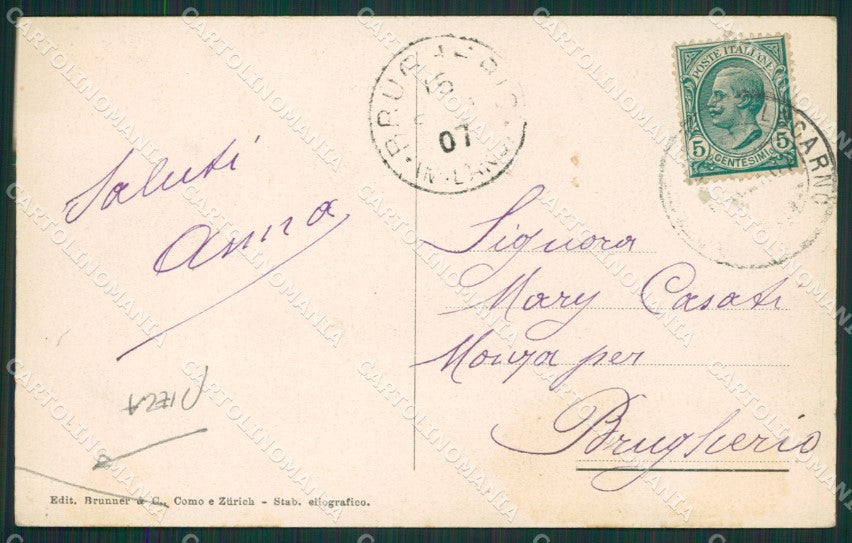 Saluti
Anna
BRUGHERIO
07
POSTE ITALIANE
5 5
CENTESIMI
Signora
Mary Casati
Monza per
Brugherio
PIEGA
Edit. Brunner & C., Como e Zürich - Stab. eliografico.
CARTOLINOMANIA